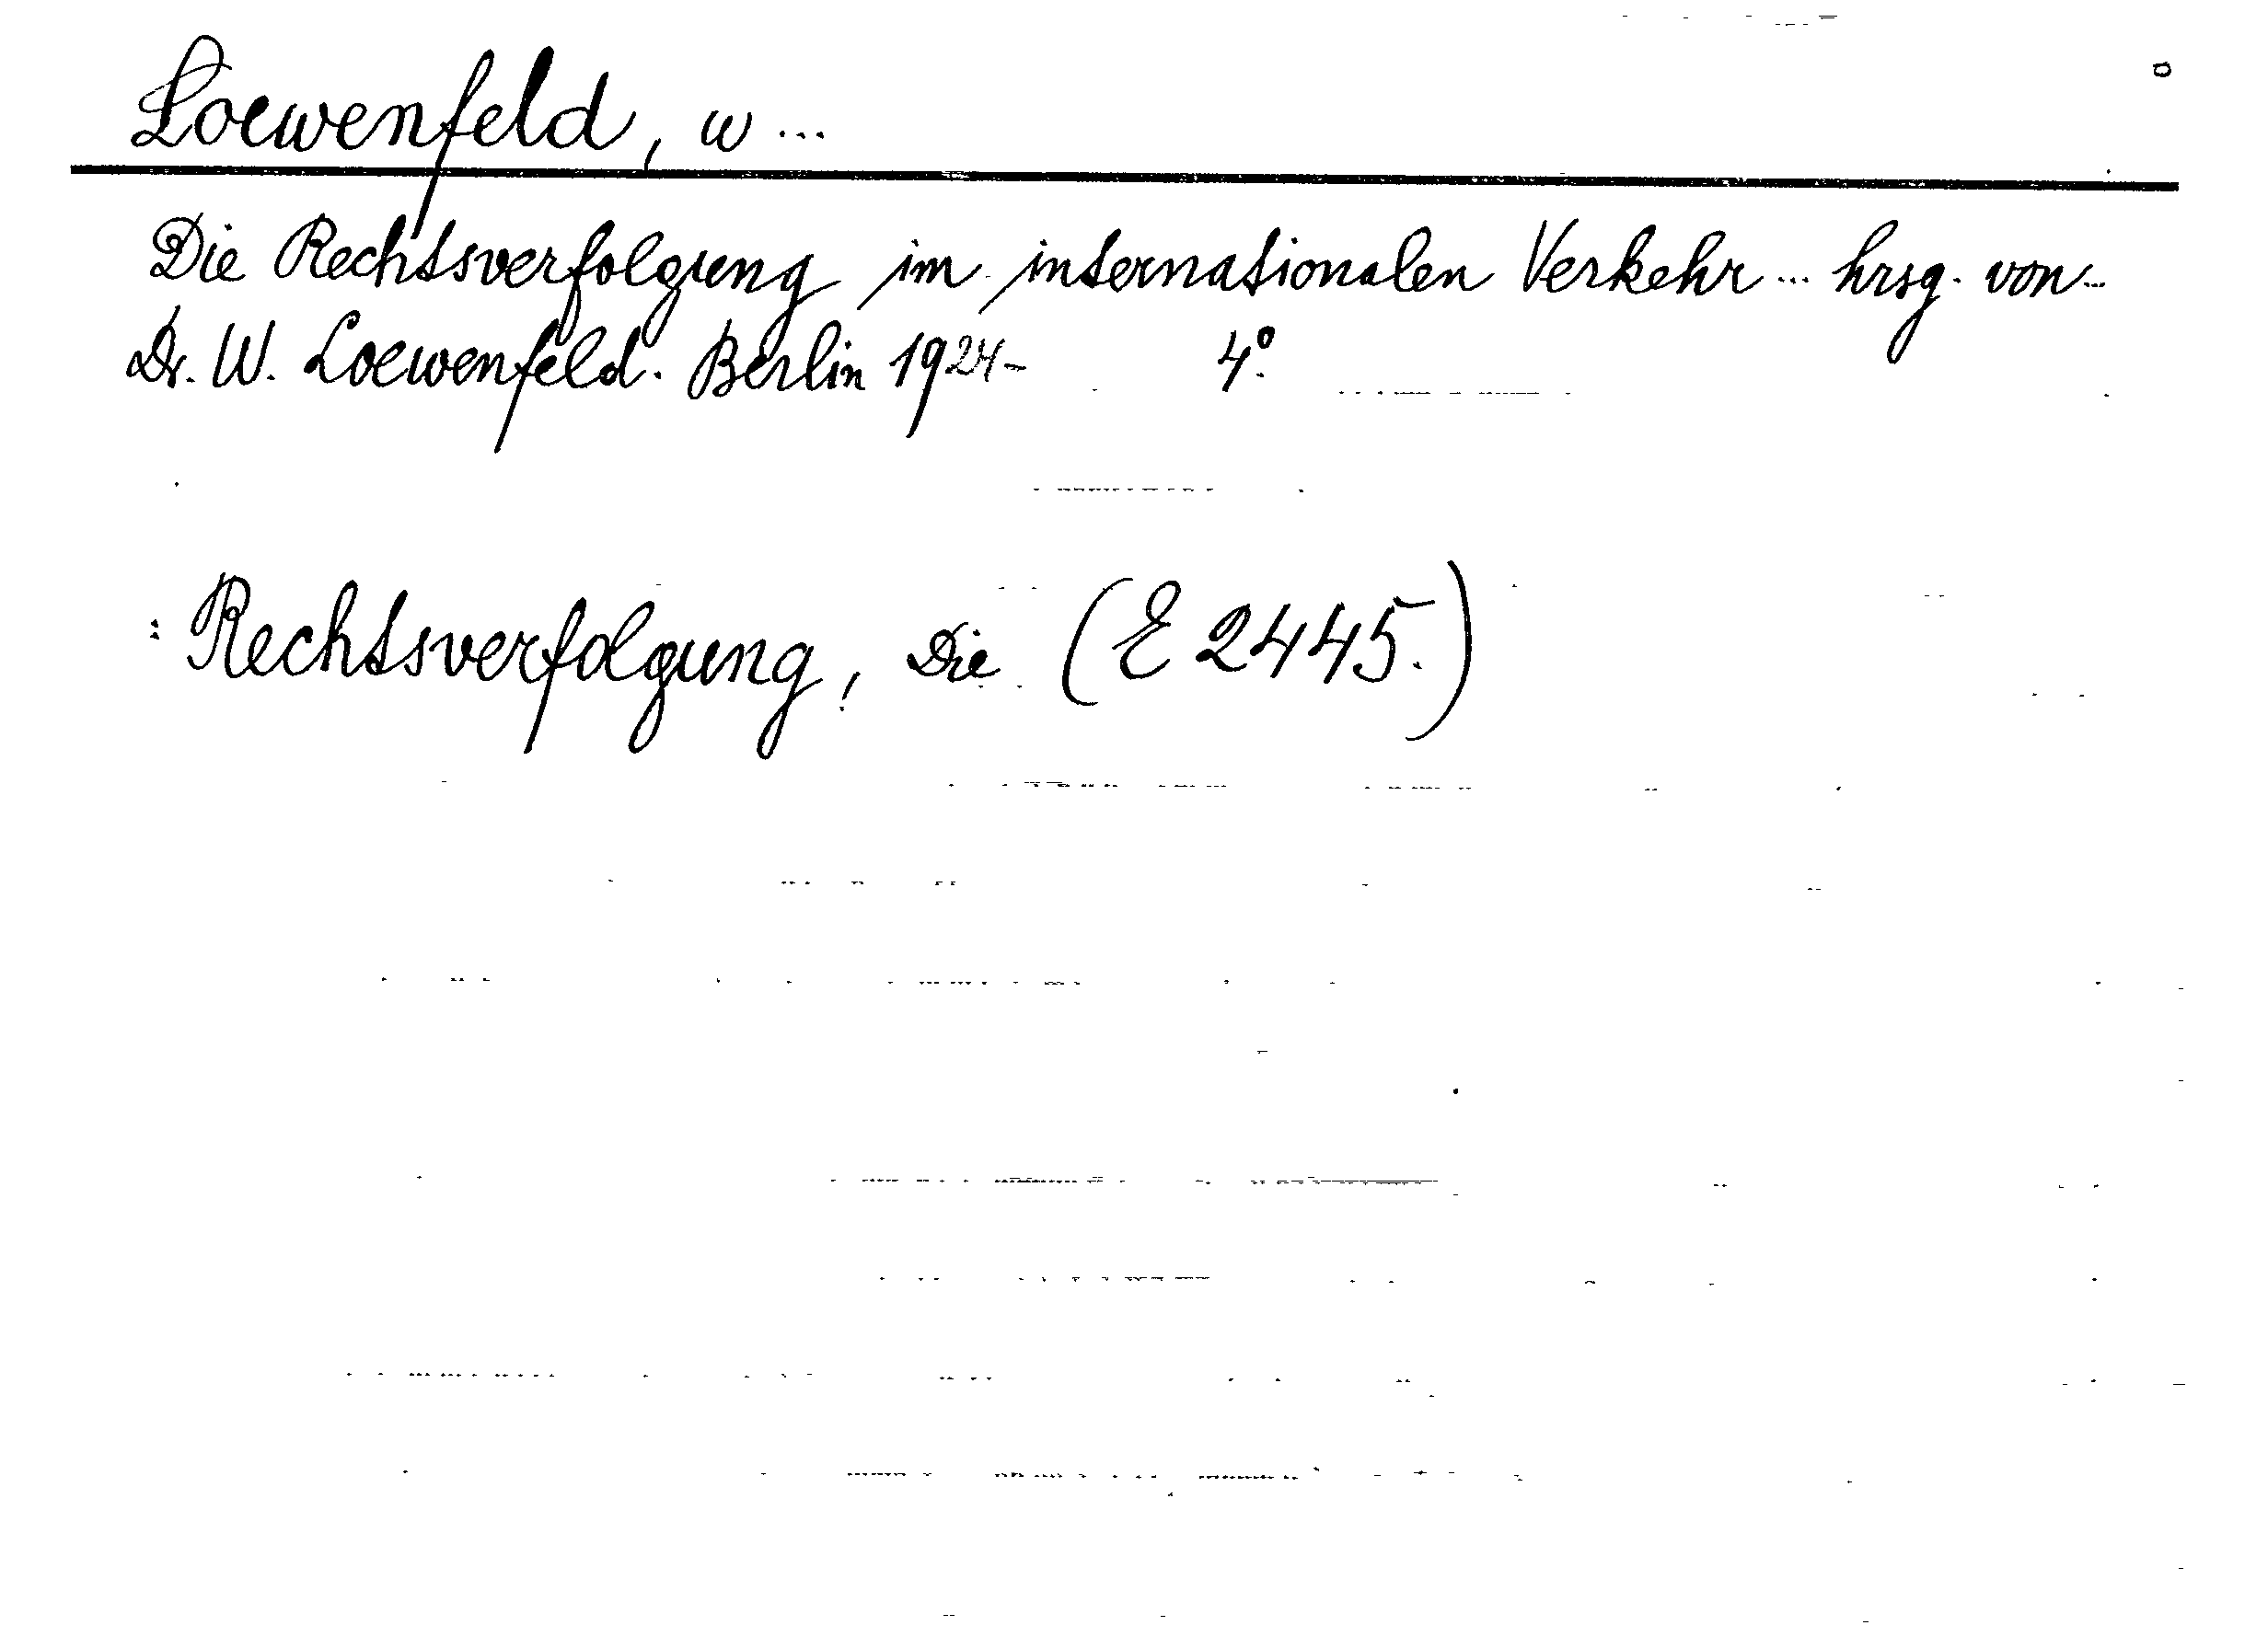 Loewenfeld, W...
Die Rechtsverfolgung im internationalen Verkehr... hrsg. von..
Dr. W. Loewenfeld. Berlin 1924- 4°.
: Rechtsverfolgung, Die (E 2445.)